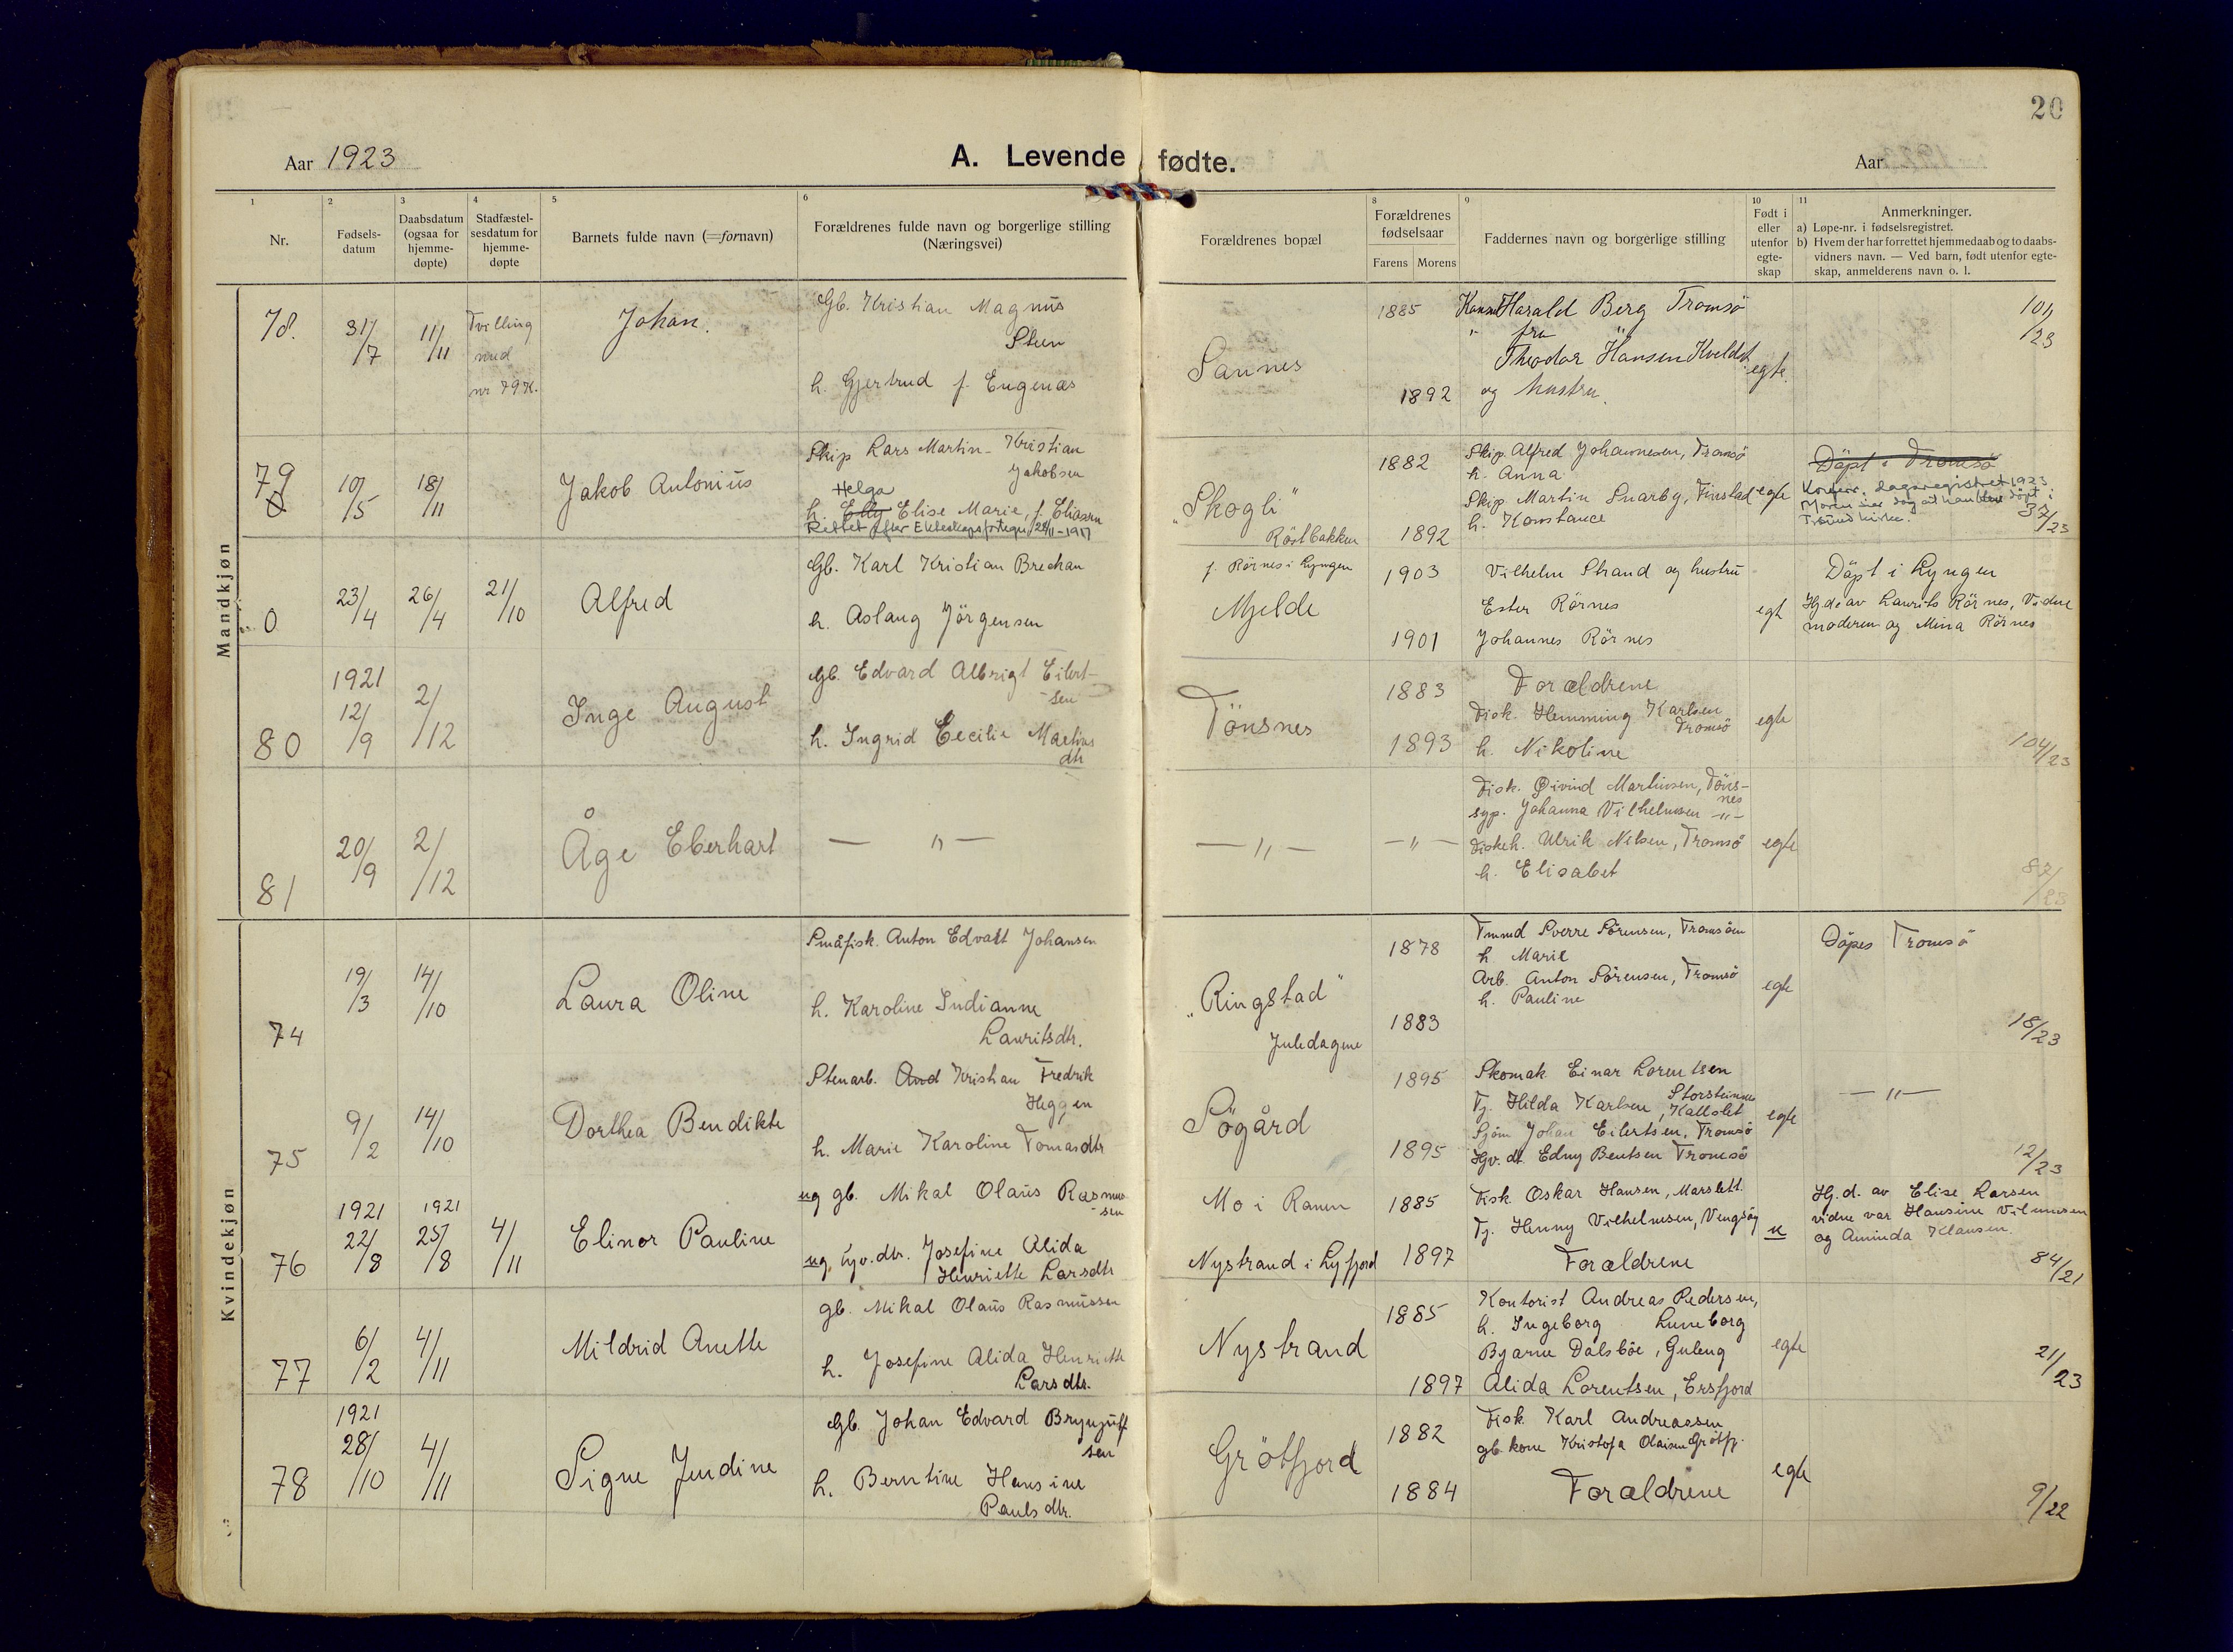 20
Aar 1923
A. Levende fødte.
Aar
1 2 3 4 5 6 8 9 10 11
Nr.
Fødsels-
datum
Daabsdatum
(ogsaa for
hjemme-
døpte)
Stadfæstel-
sesdatum for
hjemme-
døpte
Barnets fulde navn (=fornavn)
Forældrenes fulde navn og borgerlige stilling
(Næringsvei)
Forældrenes bopæl
Forældrenes
fødselsaar
Farens Morens
Faddernes navn og borgerlige stilling
Født i
eller
utenfor
egte-
skap
Anmerkninger.
a) Løpe-nr. i fødselsregistret.
b) Hvem der har forrettet hjemmedaab og to daabs-
vidners navn. — Ved barn, født utenfor egte-
skap, anmelderens navn o. l.
Mandkjøn
78.
31/7
11/11
Tvilling
med
nr 79 K.
Johan.
Gb. Kristian Magnus
Steen
h. Gjertrud f. Eugenæs
Sannes
1885
1892
Harald Berg Tromsö
" fru "
Theodor Hansen Kveldst.
og hustru.
egte.
101/23
79
0.
10/5
18/11
Jakob Antonius
Skip Lars Martin Kristian
Jakobsen
Helga
h. Elly Elise Marie, f. Eliassen
Rettet efter Ekteskapsfortegn. 28/11-1917
"Skogli"
Röstbakken
1882
1892
Skip. Alfred Johannesen, Tromsö
h. Anna
Skip. Martin Snarby, Finstad
h. Konstance
egte
Döpt i Tromsö
Konferer. dagsregistret 1923
Moren sier dog at han ble döpt i
37/23
0
23/4
26/4
21/10
Alfred
Gb. Karl Kristian Brechan
h. Aslaug Jörgensen
f. Rörnes i Lyngen
Mjelde
1903
1901
Vilhelm Strand og hustru
Ester Rörnes
Johannes Rörnes
egt
Döpt i Lyngen
Hj.dø av Laurits Rörnes, Vidne
moderen og Mina Rörnes
80
1921
12/9
2/12
Inge August
Gb. Edvard Albrigt Eilert-
sen
h. Ingrid Cecilie Martins
dtr
Tönsnes
1883
1893
Forældrene
Fisk. Hemming Karlsen
Tromsö
h. Nikoline
egte
104/23
81
20/9
2/12
Åge Eberhart
— " —
— " —
— " —
Fisk. Øivind Martinsen, Töns-
nes
syp. Johanna Vilhelmsen —"—
Fiskeh. Ulrik Nilsen, Tromsö
h. Elisabet
egte
87/23
Kvindekjøn
74
19/3
14/10
Laura Oline
Småfisk. Anton Edvart Johansen
h. Karoline Indianne
Lauritsdtr.
"Ringstad"
Juledagene
1878
1883
Tmmd Sverre Sörensen, Tromsöen
h Marie
Arb. Anton Sörensen, Tromsö
h. Pauline
egte
Döpes Tromsö
18/23
75
9/2
14/10
Dorthea Bendikte
Stenarb. And Kristian Fredrik
Heggen
h. Marie Karoline Tomasdtr
Sögård
1895
1895
Skomak Einar Lorentsen
Storsteinnes
Tj. Hilda Karlsen, Kattslet
Sjöm Johan Eilertsen, Tromsö
Hv. dt. Edny Bentsen Tromsö
egte
— " —
12/23
76
1921
22/8
1921
25/8
4/11
Elinor Pauline
ug gb. Mikal Olaus Rasmus-
sen
ug. hv. dtr. Josefine Alida
Henriette Larsdtr
Mo i Ranen
Nystrand i Lyfjord
1885
1897
Fisk. Oskar Hansen, Marslett
Tj. Henny Vilhelmsen, Vengsöy
Forældrene
u
Hj.d. av Elise Larsen
vidne var Hansine Vilumsen
og Aminda Klausen.
84/21
77
6/2
4/11
Mildrid Anette
gb. Mikal Olaus Rasmussen
h. Josefine Alida Henriette
Larsdtr.
Nystrand
1885
1897
Kontorist Andreas Pedersen,
h. Ingeborg Luneborg
Bjarne Dalsböe, Guleng
Alida Lorentsen, Ersfjord
egte
21/23
78
1921
28/10
4/11
Signe Jendine
Gb. Johan Edvard Brynjulf
sen
h. Berntine Hansine
Paulsdtr.
Grötfjord
1882
1884
Fisk Karl Andreassen
gb. kone Kristofa Olaisen Grötfj.
Forældrene
egte
9/22